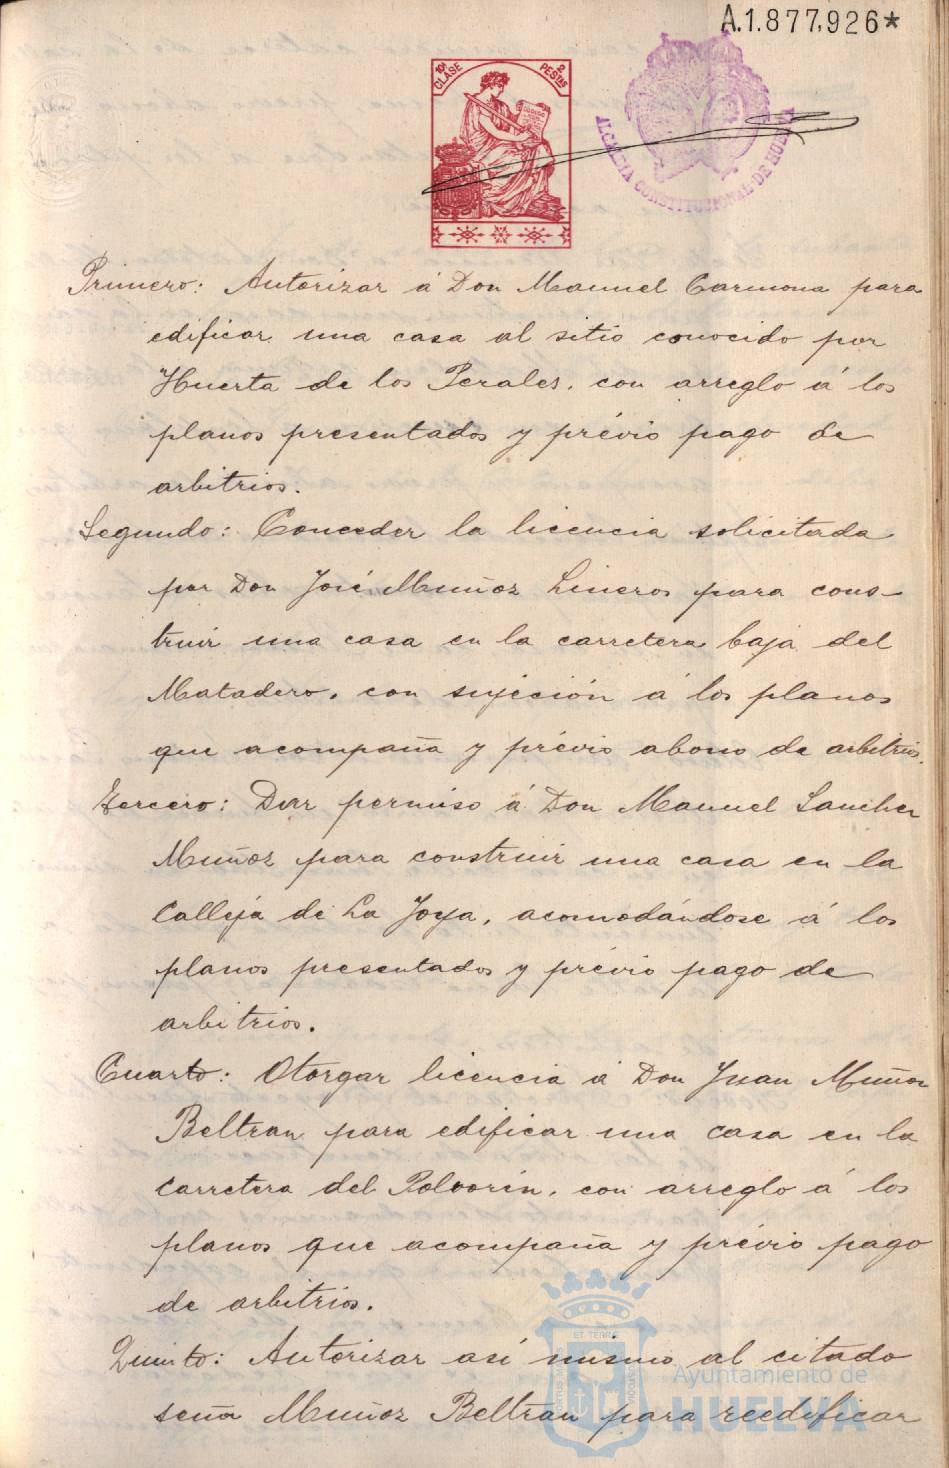 A.1.877,926*
10ª CLASE
2 PESTAS
ALCALDIA CONSTITUCIONAL DE HUELVA
Primero: Autorizar á Don Manuel Carmona para
edificar una casa al sitio conocido por
Huerta de los Perales, con arreglo á los
planos presentados y prévio pago de
arbitrios.
Segundo: Conceder la licencia solicitada
por Don José Muñoz Lineros para cons-
truir una casa en la carretera baja del
Matadero, con sujeción á los planos
que acompaña y prévio abono de arbitrios.
Tercero: Dar permiso á Don Manuel Sanchez
Muñoz para construir una casa en la
Calleja de La Joya, acomodándose á los
planos presentados y prévio pago de
arbitrios.
Cuarto: Otorgar licencia á Don Juan Muñoz
Beltran para edificar una casa en la
carretera del Polvorin, con arreglo á los
planos que acompaña y prévio pago
de arbitrios.
Quinto: Autorizar así mismo al citado
señor Muñoz Beltran para reedificar
Ayuntamiento de
HUELVA